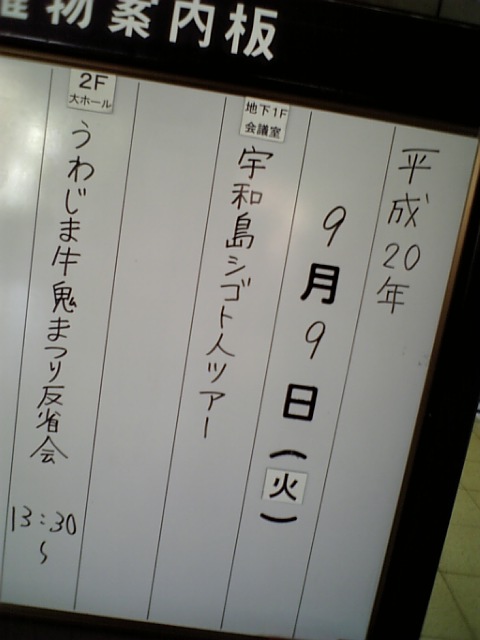 催物案内板
平成20年
9月9日(火)
地下1F
会議室
宇和島シゴト人ツアー
2F
大ホール
うわじま牛鬼まつり反省会
13:30~